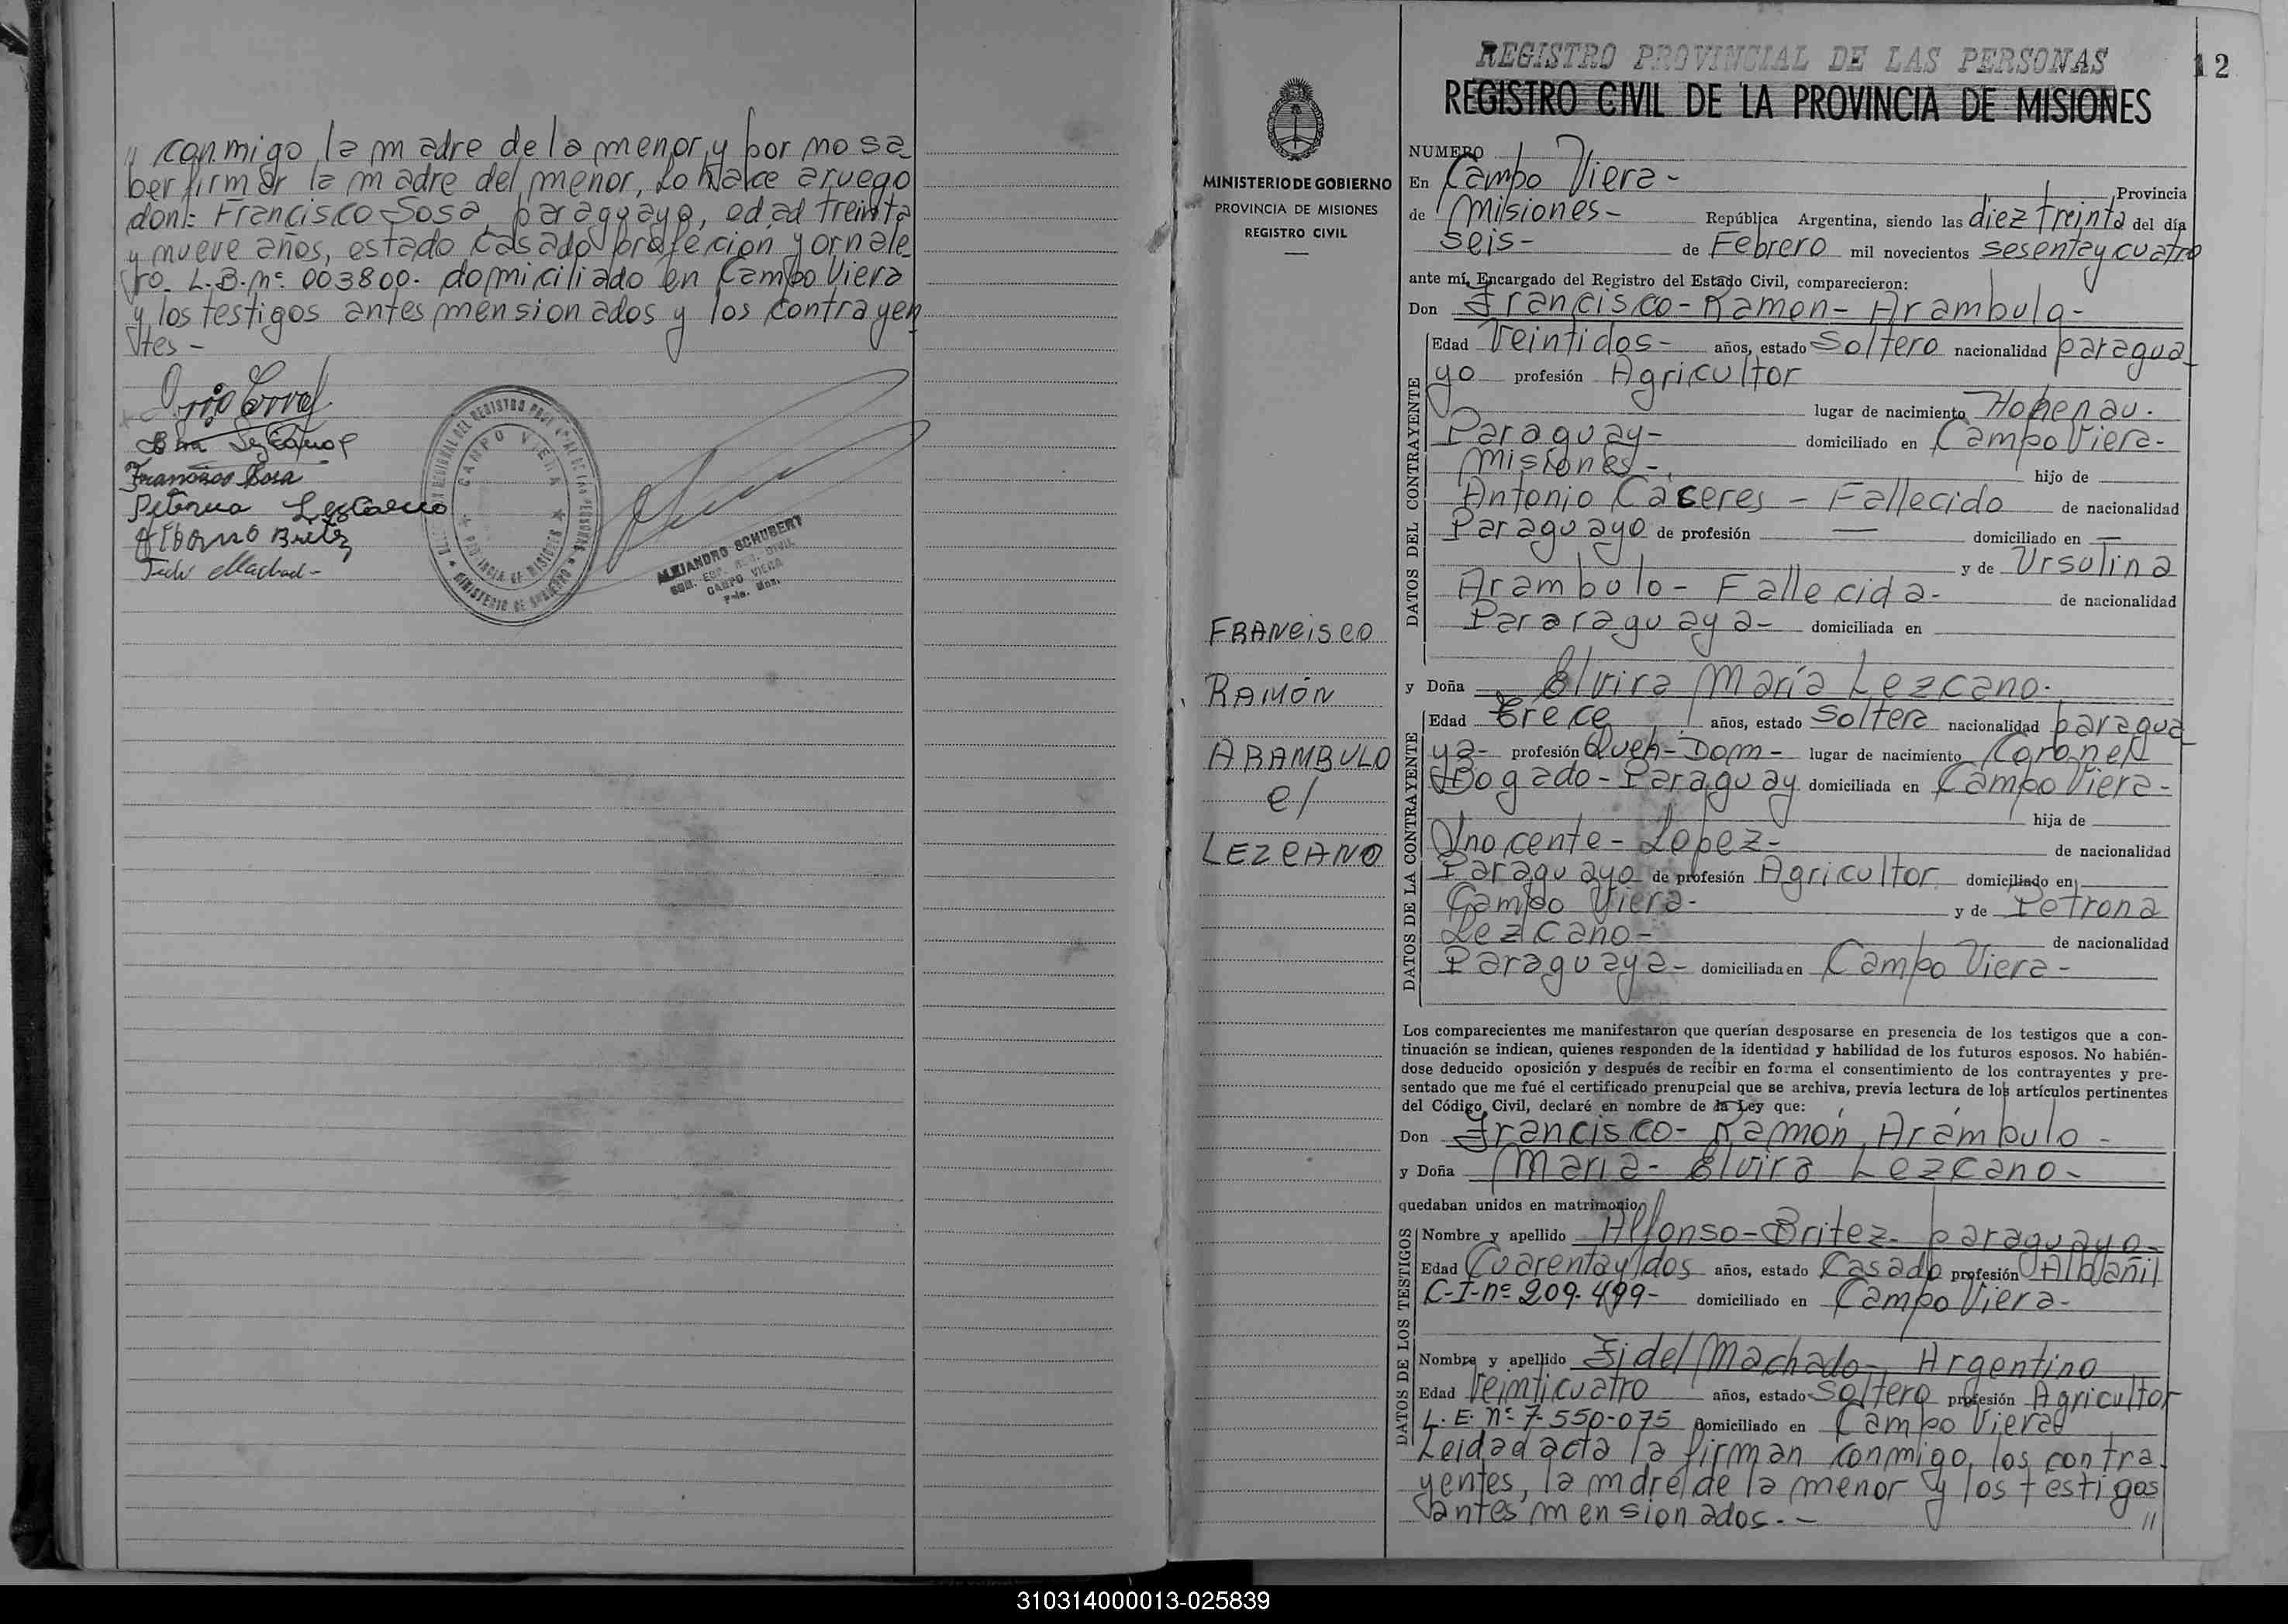 conmigo la madre dela menor y por no sa
ber firmar la madre del menor, Lo hace aruego
don:- Francisco Sosa, paraguayo, edad treinta
y nueve años, estado casado profecion yornale
ro. L.B.Nº 003800. domiciliado en Campo Viera
y los testigos antes mensionados y los contrayen
tes -
Francisco Sosa
Petrona Lezcano
Alfonso Britez
Fidel Machado
CAMPO VIERA
PROVINCIA DE MISIONES
MINISTERIO DE GOBIERNO
ALEJANDRO SCHUBERT
CAMPO VIERA
MINISTERIO DE GOBIERNO
PROVINCIA DE MISIONES
REGISTRO CIVIL
FRANCISCO
RAMÓN
ARAMBULO
c/
LEZCANO
REGISTRO PROVINCIAL DE LAS PERSONAS
12
REGISTRO CIVIL DE LA PROVINCIA DE MISIONES
NUMERO
En Campo Viera- Provincia
de Misiones- República Argentina, siendo las diez treinta del día
seis- de Febrero mil novecientos sesentaycuatro
ante mí, Encargado del Registro del Estado Civil, comparecieron:
Don Francisco-Ramon-Arambulo-
DATOS DEL CONTRAYENTE
Edad Veintidos- años, estado Soltero nacionalidad paragua
yo profesión Agricultor
lugar de nacimiento Hohenau.
Paraguay- domiciliado en Campo Viera-
Misiones- hijo de
Antonio Caceres - Fallecido de nacionalidad
Paraguayo de profesión — domiciliado en —
y de Ursulina
Arambulo- Fallecida- de nacionalidad
Pararaguaya- domiciliada en
y Doña Elvira María Lezcano.
DATOS DE LA CONTRAYENTE
Edad trece años, estado Soltera nacionalidad paragua
ya- profesión Queh-Dom- lugar de nacimiento Coronel
Bogado-Paraguay domiciliada en Campo Viera-
hija de
Ynocente-Lopez- de nacionalidad
Paraguayo de profesión Agricultor domiciliado en
Campo Viera- y de Petrona
Lezcano- de nacionalidad
Paraguaya- domiciliada en Campo Viera-
Los comparecientes me manifestaron que querían desposarse en presencia de los testigos que a con-
tinuación se indican, quienes responden de la identidad y habilidad de los futuros esposos. No habién-
dose deducido oposición y después de recibir en forma el consentimiento de los contrayentes y pre-
sentado que me fué el certificado prenupcial que se archiva, previa lectura de los artículos pertinentes
del Código Civil, declaré en nombre de la Ley que:
Don Francisco-Ramón, Arámbulo-
y Doña Maria-Elvira Lezcano-
quedaban unidos en matrimonio
DATOS DE LOS TESTIGOS
Nombre y apellido Alfonso-Britez- paraguayo-
Edad Cuarentayldos años, estado Casado profesión Albañil
C-I-nº 209.499- domiciliado en Campo Viera-
Nombre y apellido Fidel Machado-, Argentino
Edad Veinticuatro años, estado Soltero profesión Agricultor
L.E. nº 7-550-075 domiciliado en Campo Viera
Leidad acta la firman conmigo, los contra
yentes, la mdre de la menor y los testigos
antes mensionados.- - //
310314000013-025839